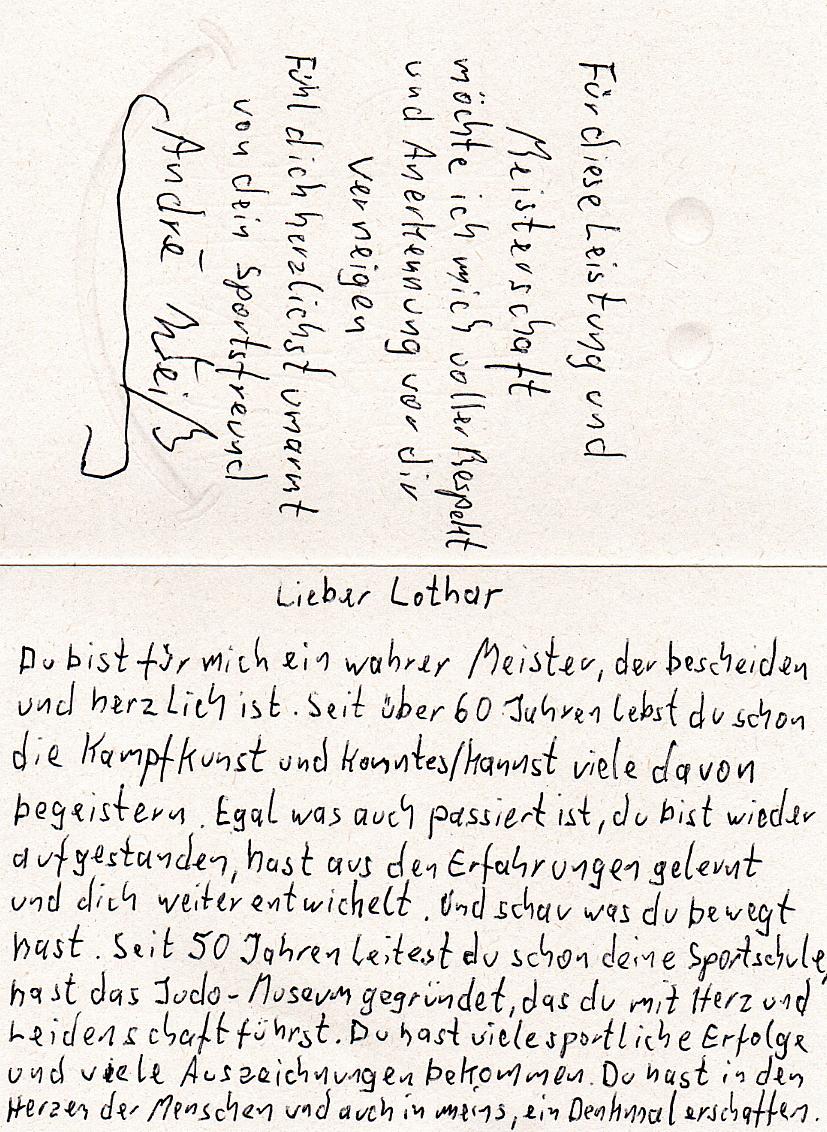 Lieber Lothar
Du bist für mich ein wahrer Meister, der bescheiden
und herzlich ist. Seit über 60 Jahren lebst du schon
die Kampfkunst und konntes/kannst viele davon
begeistern. Egal was auch passiert ist, du bist wieder
aufgestanden, hast aus den Erfahrungen gelernt
und dich weiter entwickelt. Und schau was du bewegt
hast. Seit 50 Jahren leitest du schon deine Sportschule,
hast das Judo-Museum gegründet, das du mit Herz und
Leidenschaft führst. Du hast viele sportliche Erfolge
und viele Auszeichnungen bekommen. Du hast in den
Herzen der Menschen und auch in meins, ein Denkmal erschaffen.
Für diese Leistung und
Meisterschaft
möchte ich mich voller Respekt
und Anerkennung vor dir
verneigen
Fühl dich herzlichst umarmt
von dein Sportsfreund
André